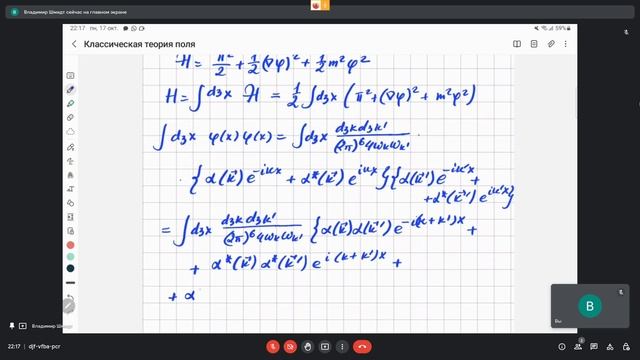 Владимир Шмидт сейчас на главном экране
22:17 пн, 17 окт.
59%
Классическая теория поля
ℋ = π²/2 + 1/2 (∇φ)² + 1/2 m²φ²
H = ∫d₃x ℋ = 1/2 ∫d₃x (π² + (∇φ)² + m²φ²)
∫d₃x φ(x)φ(x) = ∫d₃x d₃k d₃k' / (2π)⁶4ω_kω_k' ·
· {α(k⃗)e^{-ikx} + α*(k⃗)e^{ikx}}{α(k⃗')e^{-ik'x} +
+ α*(k⃗')e^{ik'x}}
= ∫d₃x d₃k d₃k' / (2π)⁶4ω_kω_k' {α(k⃗)α(k⃗')e^{-i(k+k')x} +
+ α*(k⃗) α*(k⃗') e^{i(k+k')x} +
+ α
В
Вы
Владимир Шмидт
22:17 | djf-vfba-pcr